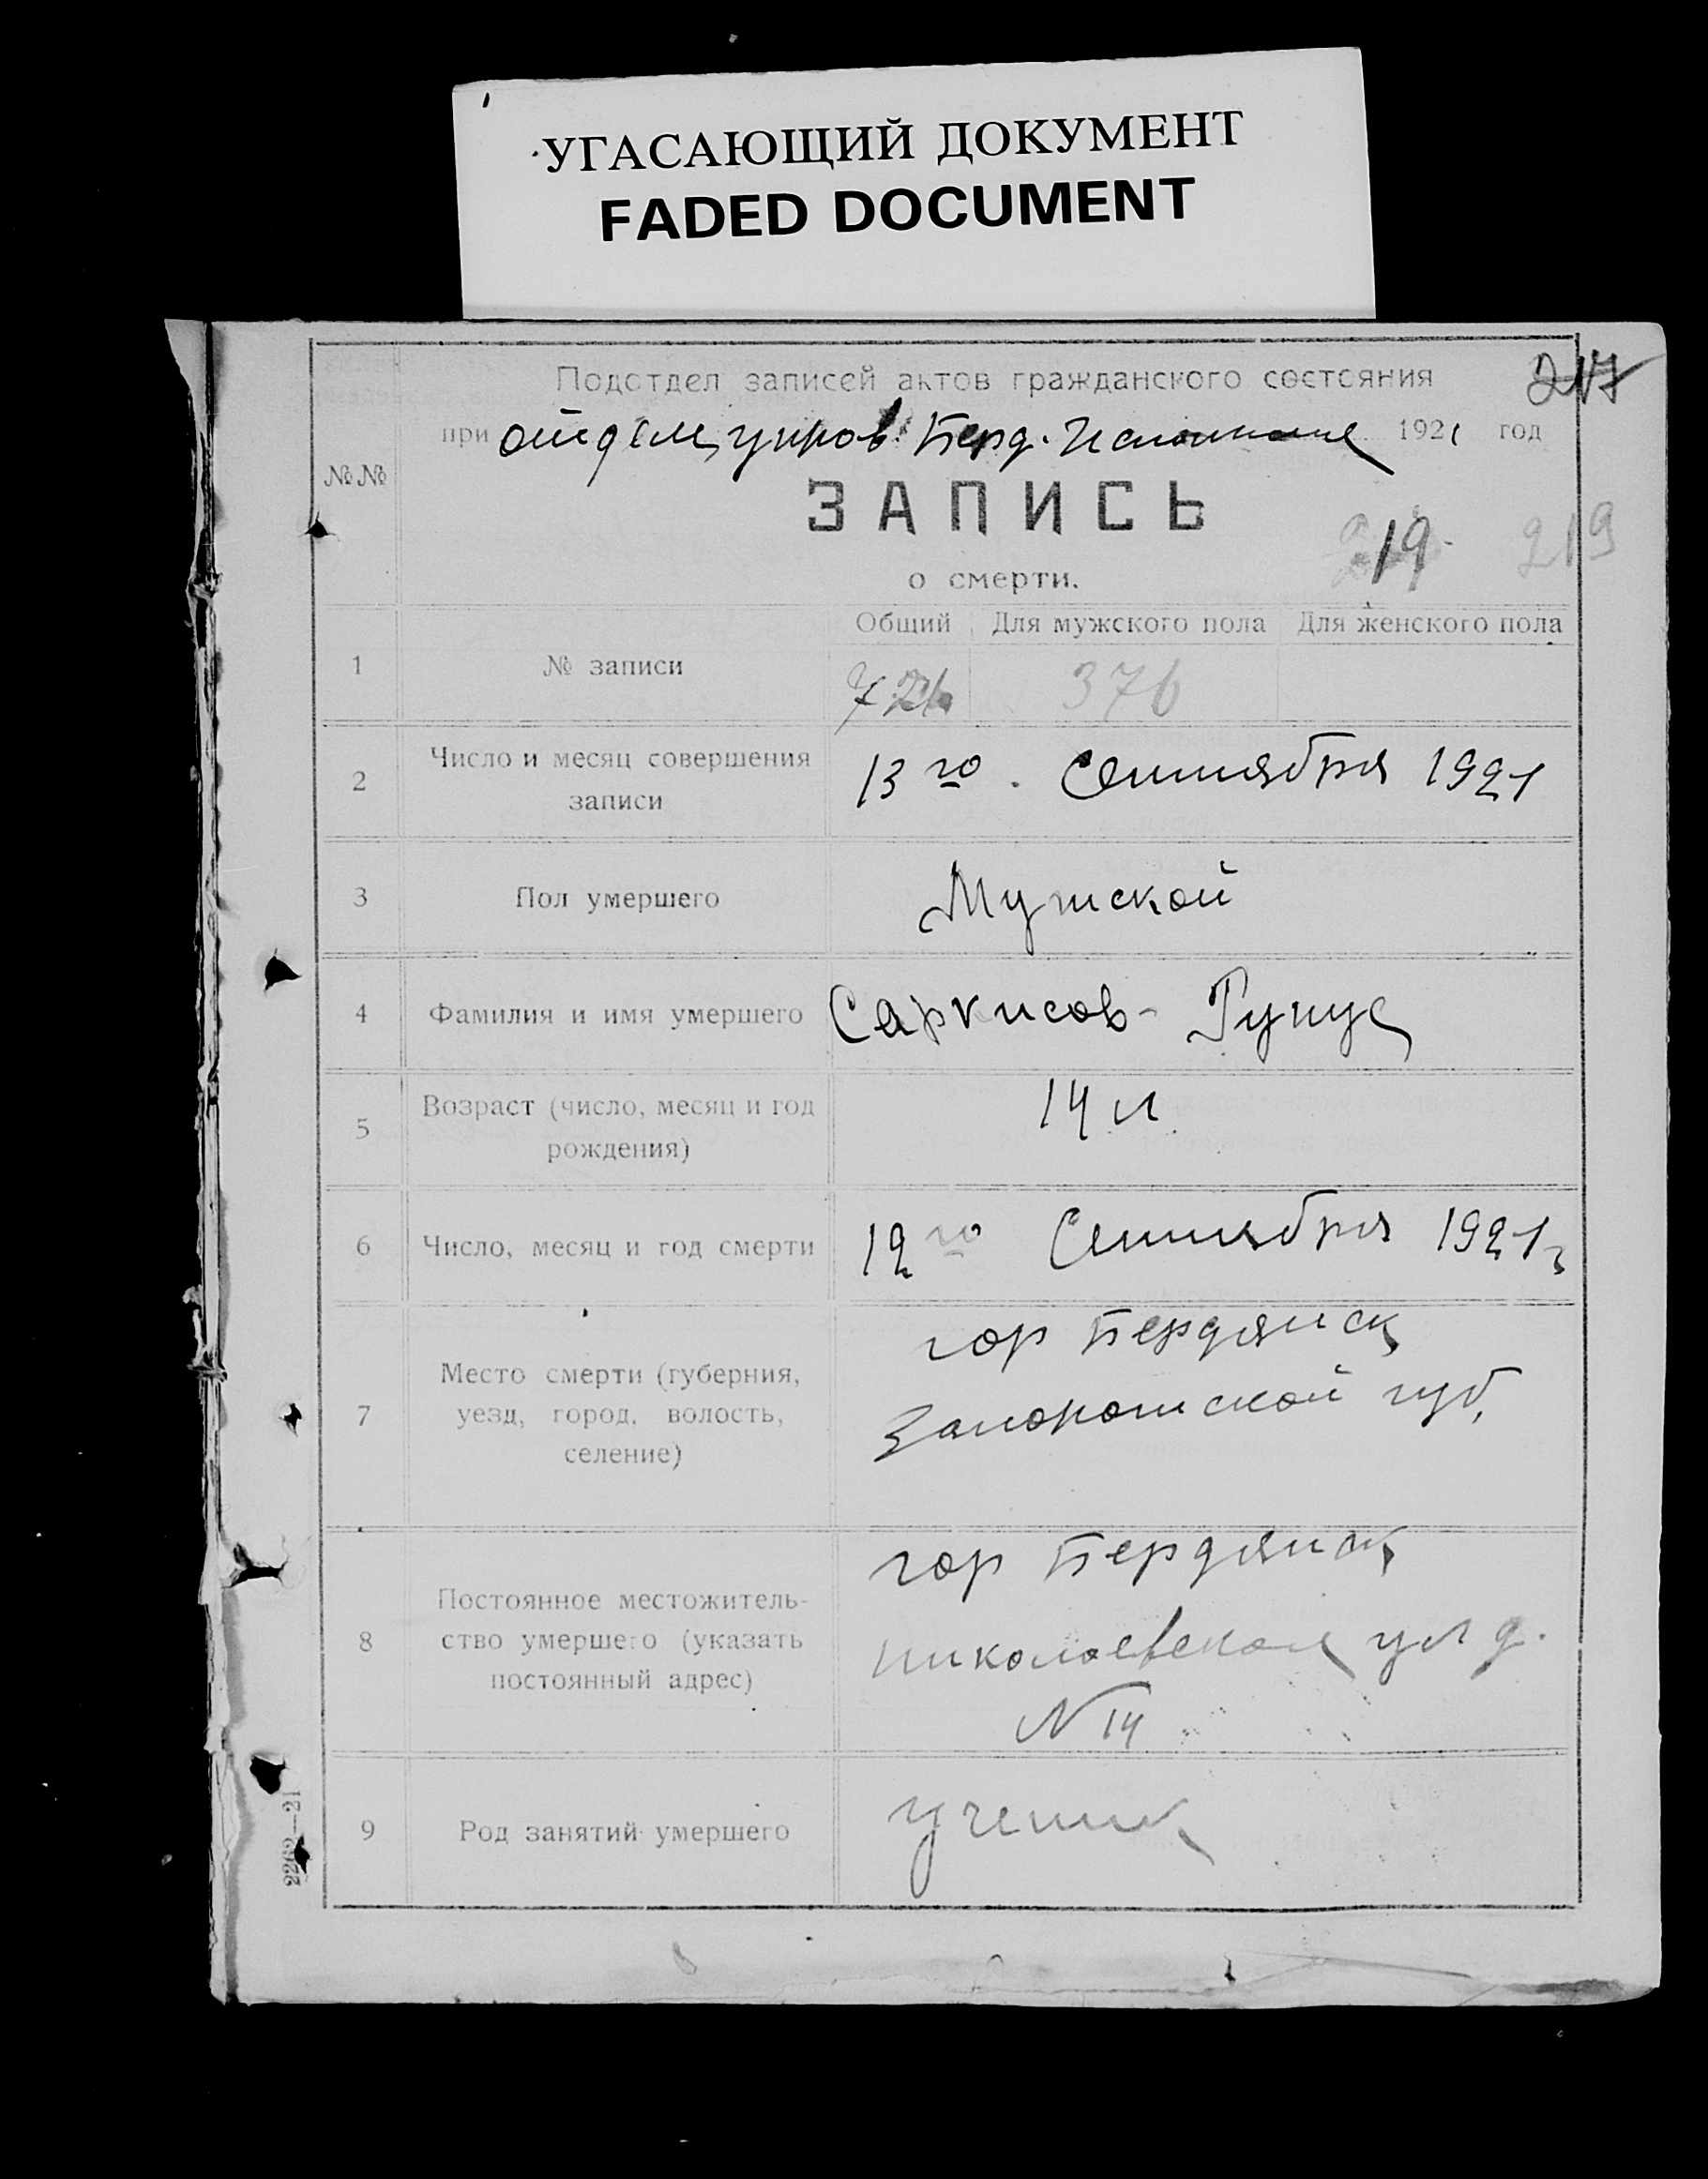 УГАСАЮЩИЙ ДОКУМЕНТ
FADED DOCUMENT
217
Подотдел записей актов гражданского состояния
при отдел управ. Берд. 1921 год
№№
ЗАПИСЬ
19. 219
о смерти.
Общий Для мужского пола Для женского пола
1 № записи 726 376
2 Число и месяц совершения
записи
13го. Сентября 1921
3 Пол умершего Мужской
4 Фамилия и имя умершего Саркисов-
5 Возраст (число, месяц и год
рождения)
14 л.
6 Число, месяц и год смерти 12го Сентября 1921г
7 Место смерти (губерния,
уезд, город, волость,
селение)
гор Бердянск
Запорожской губ.
8 Постоянное местожитель-
ство умершего (указать
постоянный адрес)
гор Бердянск
Николаевская ул д.
N 14
9 Род занятий умершего ученик
2262—21